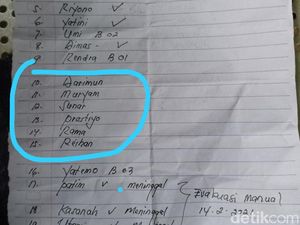 5. Riyono ✓
6. Yatini ✓
7. Umi B 02
8. Dimas ✓
9. Rendra B 01
10. Darimun
11. Maryam
12. Sunar
13. Prastiyo
14. Rama
15. Raihan
16. Yatemo B 03
17. Patim ✓ meninggal
Evakuasi Manual
18. Kasanah ✓ meninggal
14-2-2021
detikcom